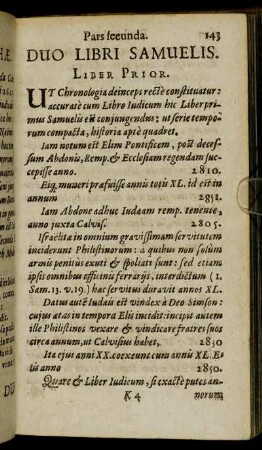 Pars secunda. 143
DUO LIBRI SAMUELIS.
LIBER PRIOR.
UT Chronologia deinceps rectè constituatur:
accuratè cum Libro Iudicum hic Liber pri-
mus Samuelis est conjungendus; ut serie tempo-
rum compacta, historia aptè quadret.
Iam notum est Elim Pontificem, post deces-
sum Abdonis, Remp. & Ecclesiam regendam suc-
cepisse anno. 2810.
Eiq; muneri præfuisse annis totis XL. id est in
annum 2851.
Iam Abdone adhuc Iudæam remp. tenente,
anno juxta Calvis. 2805.
Israëlitæ in omnium gravissimam servitutem
inciderunt Philistinorum: à quibus non solùm
armis penitùs exuti & spoliati sunt: sed etiam
ipsis omnibus officinis ferrarijs, interdictum (1.
Sam. 13. v. 19.) hæc servitus duravit annos XL.
Datus autẽ Iudæis est vindex à Deo Simson:
cujus ætas in tempora Elis incidit: incipit autem
ille Philistinos vexare & vindicare fratres suos
circa annum, ut Calvisius habet, 2830
Ita ejus anni XX. coëxeunt cum annis XL. E-
lis anno 2850.
Quare & Liber Iudicum, si exactè putes an-
K 4 norum